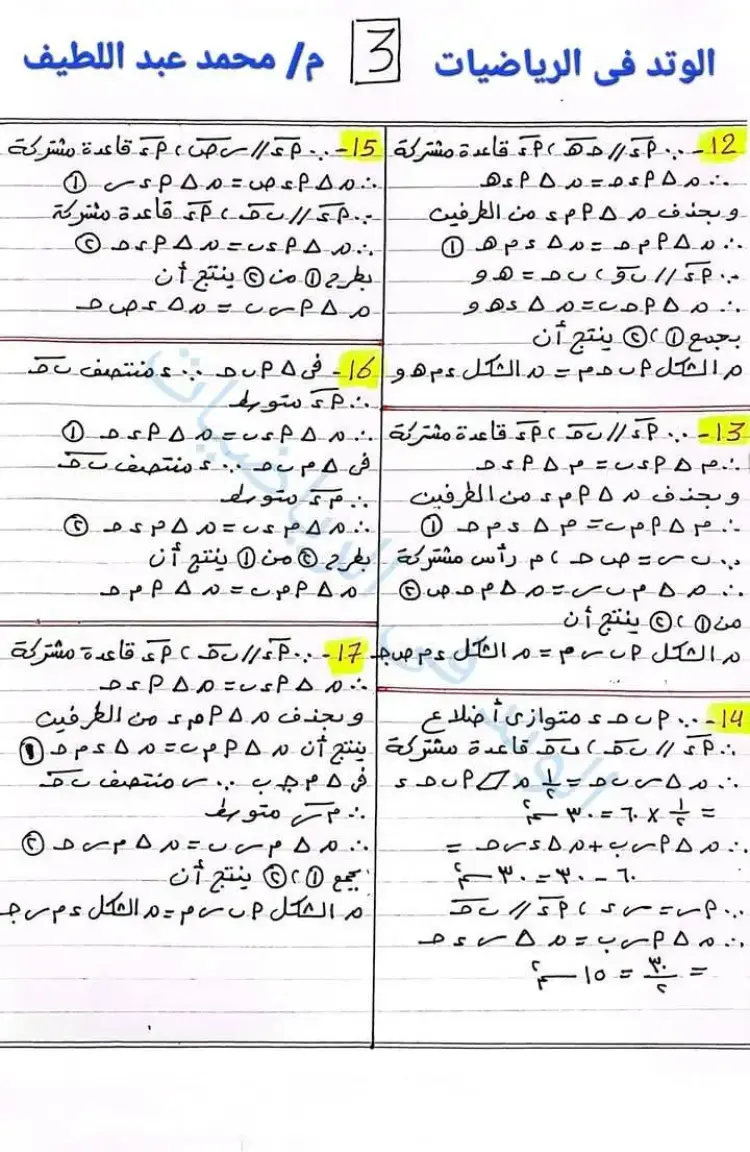 الوتد فى الرياضيات 3 م/ محمد عبد اللطيف
12- ∵ أد // حھ ، أد قاعدة مشتركة
∴ م △ أ د ح = م △ أ د ھ
وبحذف م △ أ م د من الطرفين
∴ م △ أ م ح = م △ د م ھ ①
∵ أد // ب و ، ب ح = ھ و
∴ م △ أ ح ب = م △ د ھ و
بجمع ① ، ② ينتج أن
م الشكل أ ب ح م = م الشكل د م ھ و
13- ∵ أد // ب ح ، أد قاعدة مشتركة
∴ م △ أ د ب = م △ أ د ح
وبحذف م △ أ م د من الطرفين
∴ م △ أ م ب = م △ د م ح ①
∵ ب س = ص ح ، م رأس مشتركة
∴ م △ م ب س = م △ م ح ص ②
من ① ، ② ينتج أن
م الشكل أ ب س م = م الشكل د م ص ج
14- ∵ أ ب ح د متوازى أضلاع
∴ أد // ب ح ، ب ح قاعدة مشتركة
∴ م △ س ب ح = ١/٢ م ▱ أ ب ح د
= ١/٢ × ٦٠ = ٣٠ سم٢
∴ م △ أ س ب + م △ د س ح =
٦٠ - ٣٠ = ٣٠ سم٢
∵ أ س = س د ، أد // ب ح
∴ م △ أ س ب = م △ س د ح
= ٣٠/٢ = ١٥ سم٢
15- ∵ أد // س ص ، أد قاعدة مشتركة
∴ م △ أ د ص = م △ أ د س ①
∵ أد // ب ح ، أد قاعدة مشتركة
∴ م △ أ د ب = م △ أ د ح ②
بطرح ① من ② ينتج أن
م △ أ س ب = م △ د ص ح
16- فى △ أ ب ح ∵ د منتصف ب ح
∴ أد متوسط
∴ م △ أ د ب = م △ أ د ح ①
فى △ م ب ح ∵ د منتصف ب ح
∴ م د متوسط
∴ م △ م د ب = م △ م د ح ②
بطرح ② من ① ينتج أن
م △ أ م ب = م △ أ م ح
17- ∵ أد // ب ح ، أد قاعدة مشتركة
∴ م △ أ د ب = م △ أ د ح
وبحذف م △ أ م د من الطرفين
ينتج أن م △ أ م ب = م △ د م ح ①
فى △ م ج ب ∵ س منتصف ب ح
∴ م س متوسط
∴ م △ م س ب = م △ م س ح ②
بجمع ① ، ② ينتج أن
م الشكل أ ب س م = م الشكل د م س ج
الوتد فى الرياضيات